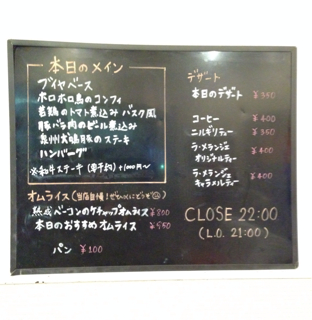 本日のメイン
ブイヤベース
ホロホロ鳥のコンフィ
若鶏のトマト煮込み バスク風
豚バラ肉のビール煮込み
泉州犬鳴豚のステーキ
ハンバーグ
※和牛ステーキ(要予約)+1000円〜
オムライス(当店自慢!ぜひいちどどうぞ
熟成ベーコンのケチャップオムライス ¥800
本日のおすすめオムライス ¥950
パン ¥100
デザート
本日のデザート ¥350
コーヒー ¥400
ニルギリティー ¥350
ラ・メランジェ
オリジナルティー ¥400
ラ・メランジェ
キャラメルティー ¥400
CLOSE 22:00
(L.O. 21:00)